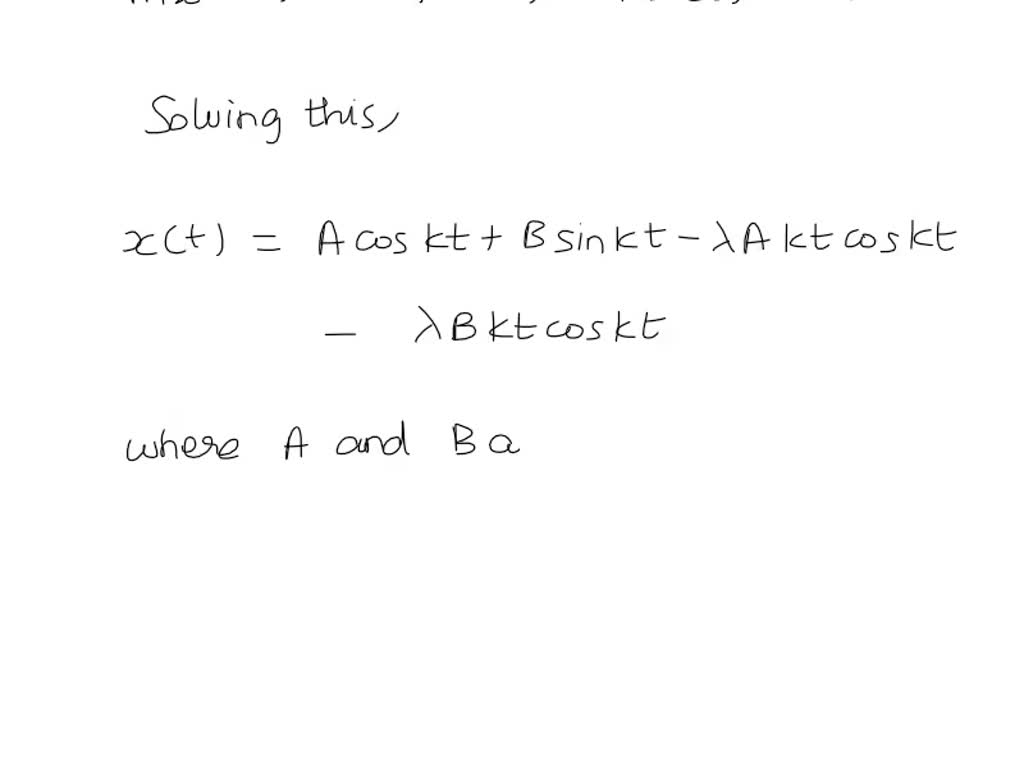 Solving this,
x(t) = A cos kt + B sin kt - λA kt cos kt
- λB kt cos kt
where A and B a